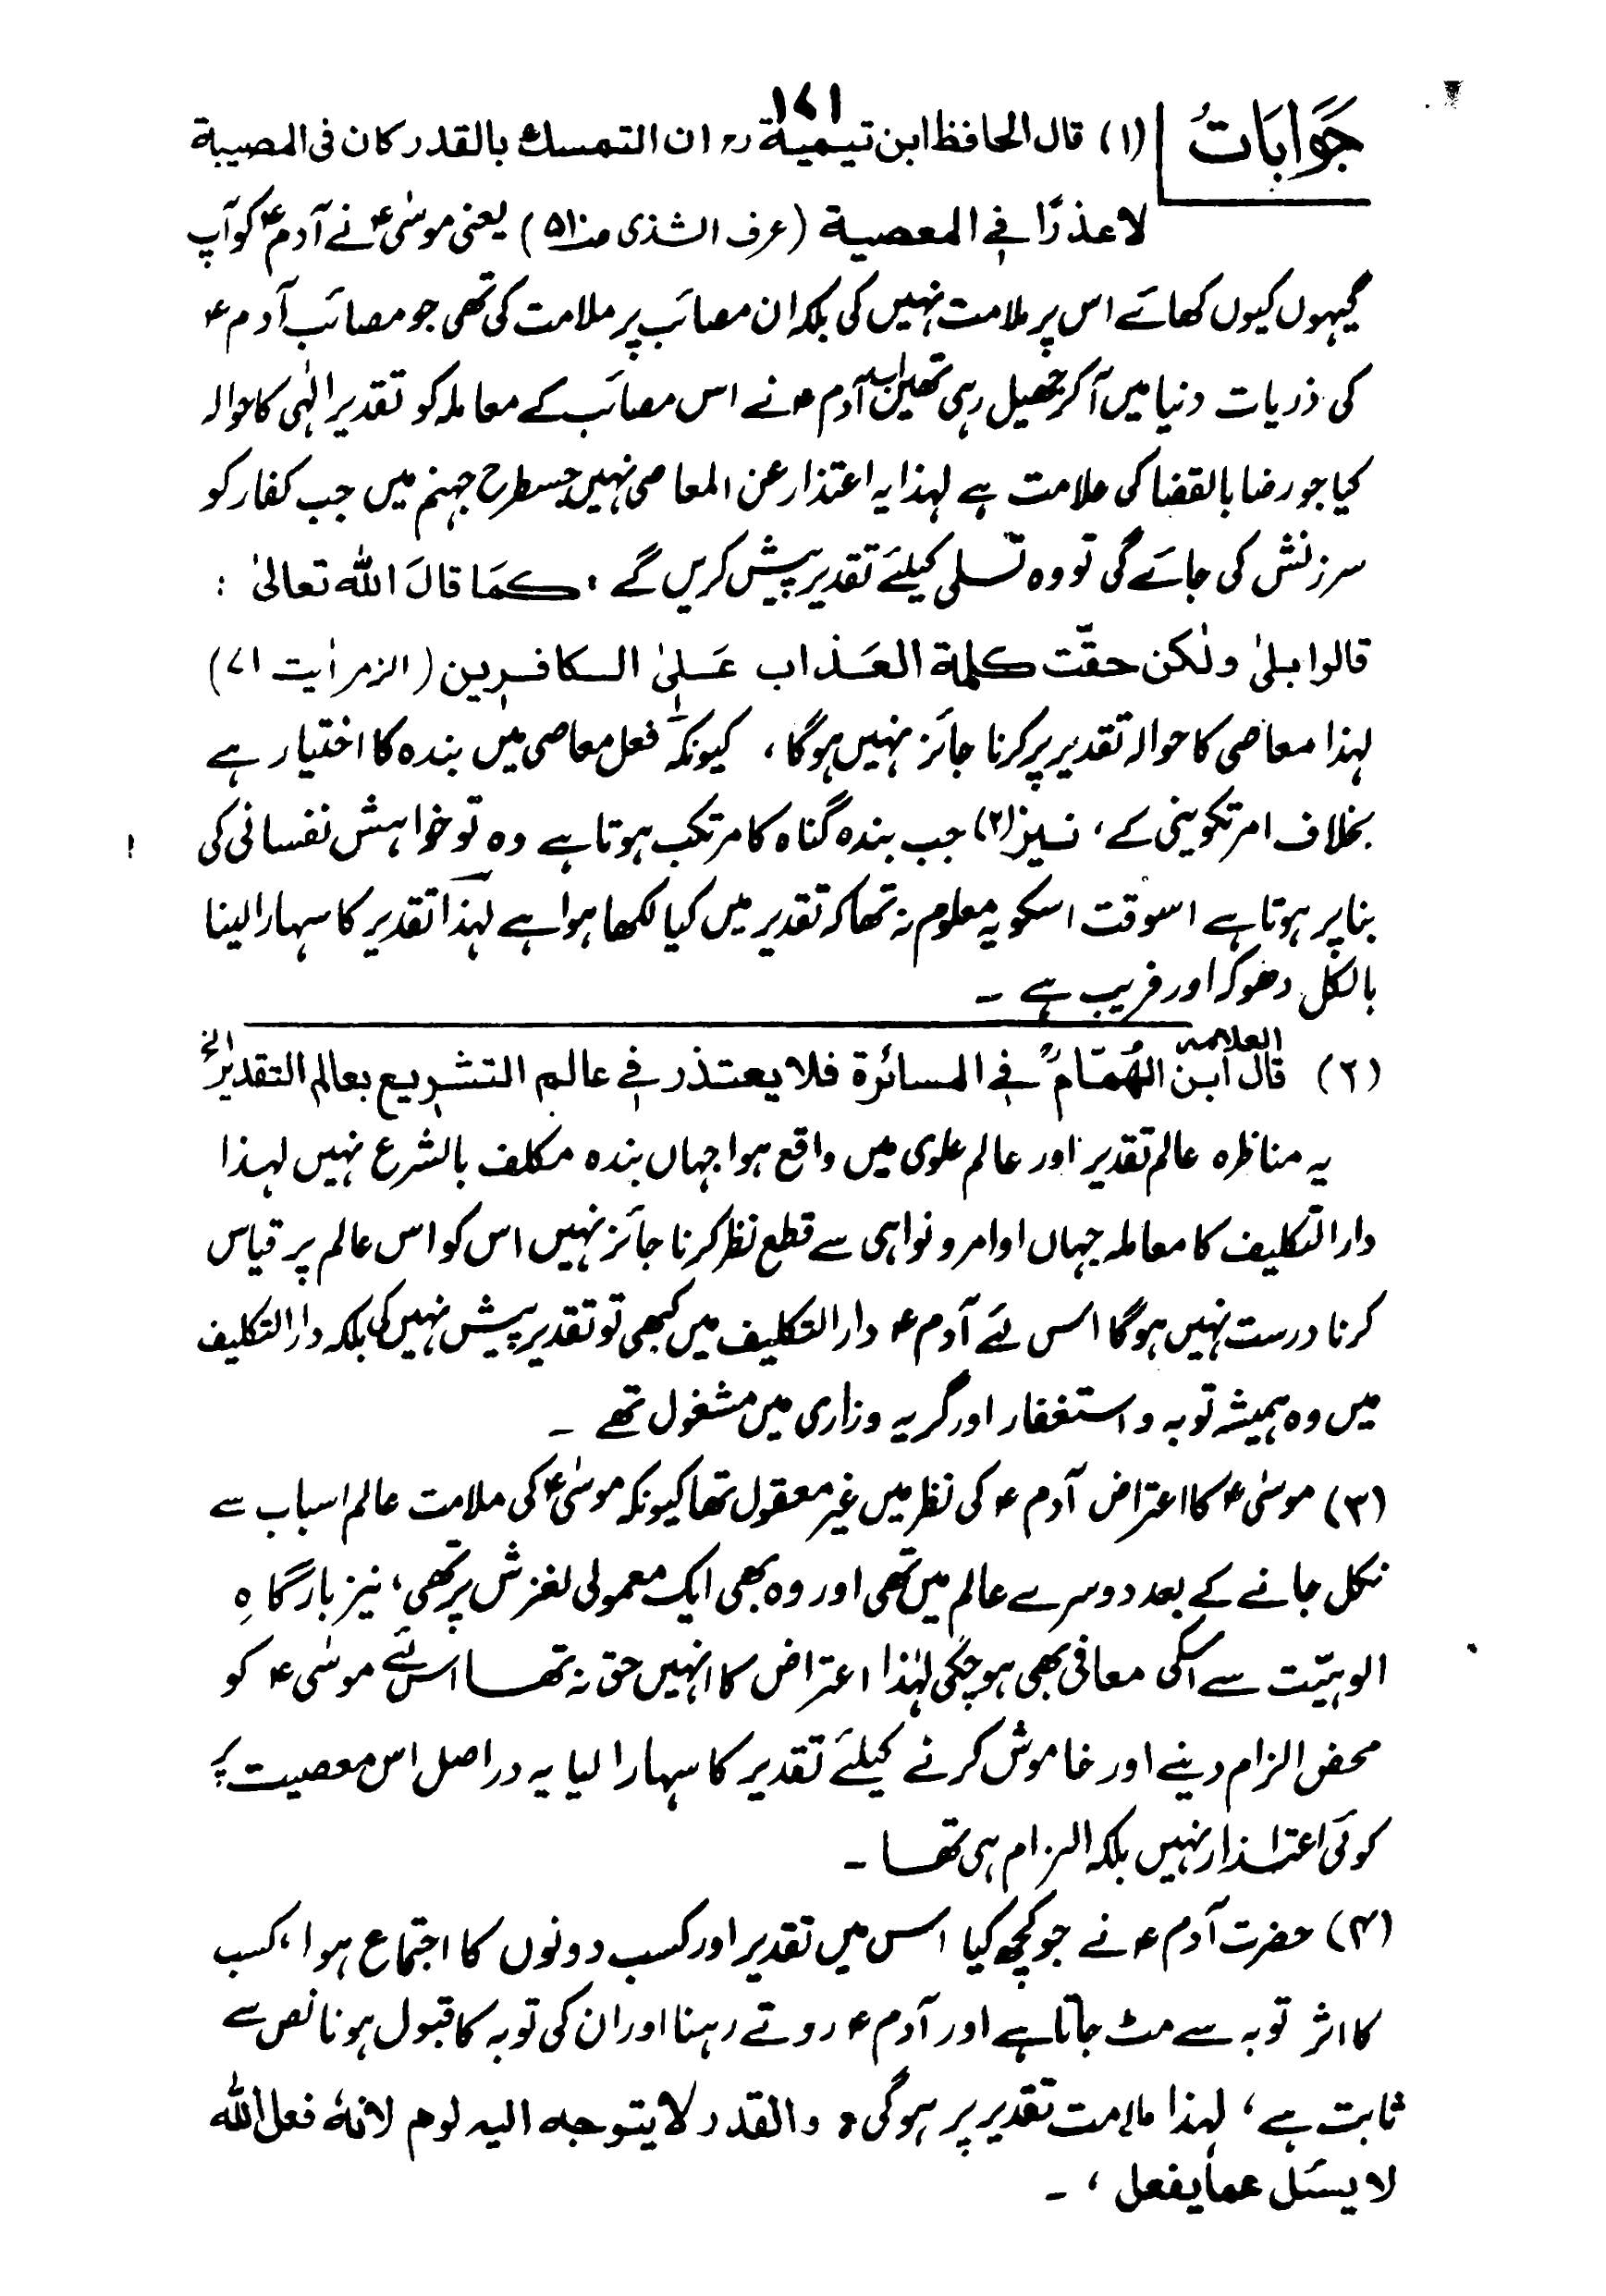 ۱۷۱
جَوَابَاتُ (۱) قال الحافظ ابن تیمیة رح ان التمسك بالقدر کان فی المصیبة
لا عذرًا فی المعصیة (عرف الشذی ص ۵۱) یعنی موسٰی ؑ نے آدم ؑ کو آپ
گیہوں کیوں کھائے اس پر ملامت نہیں کی بلکہ ان مصائب پر ملامت کی تھی جو مصائب آدم ؑ
کی ذریات دنیا میں آکر جھیل رہی تھیں آدم ؑ نے اس مصائب کے معاملہ کو تقدیر الٰہی کا حوالہ
کیا جو رضا بالقضا کی علامت ہے لہذا یہ اعتذار عن المعاصی نہیں جسطرح جہنم میں جب کفار کو
سرزنش کی جائے گی تو وہ تسلی کیلئے تقدیر پیش کریں گے ، کمَا قالَ اللّٰه تعالیٰ :
قالوا بلیٰ ولٰکن حقّت کلمة العَذاب عَلیٰ الکافرین (الزمر اٰیت ۷۱)
لہذا معاصی کا حوالہ تقدیر پر کرنا جائز نہیں ہوگا ، کیونکہ فعل معاصی میں بندہ کا اختیار ہے
بخلاف امر تکوینی کے ، نیز (۲) جب بندہ گناہ کا مرتکب ہوتا ہے وہ تو خواہش نفسانی کی
بنا پر ہوتا ہے اسوقت اسکو یہ معلوم نہ تھا کہ تقدیر میں کیا لکھا ہوا ہے لہذا تقدیر کا سہارا لینا
بالکل دھوکہ اور فریب ہے ۔
(۲) قال العلامہ ابن الھُمّامؒ فی المسائرة فلا یعتذر فی عالم التشریع بعالم التقدیر الخ
یہ مناظرہ عالم تقدیر اور عالم علوی میں واقع ہوا جہاں بندہ مکلف بالشرع نہیں لہذا
دار التکلیف کا معاملہ جہاں اوامر و نواہی سے قطع نظر کرنا جائز نہیں اس کو اس عالم پر قیاس
کرنا درست نہیں ہوگا اس لئے آدم ؑ دار التکلیف میں کبھی تو تقدیر پیش نہیں کی بلکہ دار التکلیف
میں وہ ہمیشہ توبہ و استغفار اور گریہ وزاری میں مشغول تھے ۔
(۳) موسٰی ؑ کا اعتراض آدم ؑ کی نظر میں غیر معقول تھا کیونکہ موسٰی ؑ کی ملامت عالم اسباب سے
نکل جانے کے بعد دوسرے عالم میں تھی اور وہ بھی ایک معمولی لغزش پر تھی ، نیز بارگاہِ
الوہیّت سے اسکی معافی بھی ہوچکی لہٰذا اعتراض کا انہیں حق نہ تھا اس لئے موسٰی ؑ کو
محض الزام دینے اور خاموش کرنے کیلئے تقدیر کا سہارا لیا یہ در اصل اس معصیت پر
کوئی اعتذار نہیں بلکہ الزام ہی تھا ۔
(۴) حضرت آدم ؑ نے جو کچھ کیا اس میں تقدیر اور کسب دونوں کا اجتماع ہوا ، کسب
کا اثر توبہ سے مٹ جاتا ہے اور آدم ؑ روتے رہنا اور ان کی توبہ کا قبول ہونا نص سے
ثابت ہے ، لہذا ملامت تقدیر پر ہوگی ، والقدر لا یتوجه الیه لوم لانهٗ فعل اللّٰه
لا یسئل عما یفعل ، ۔